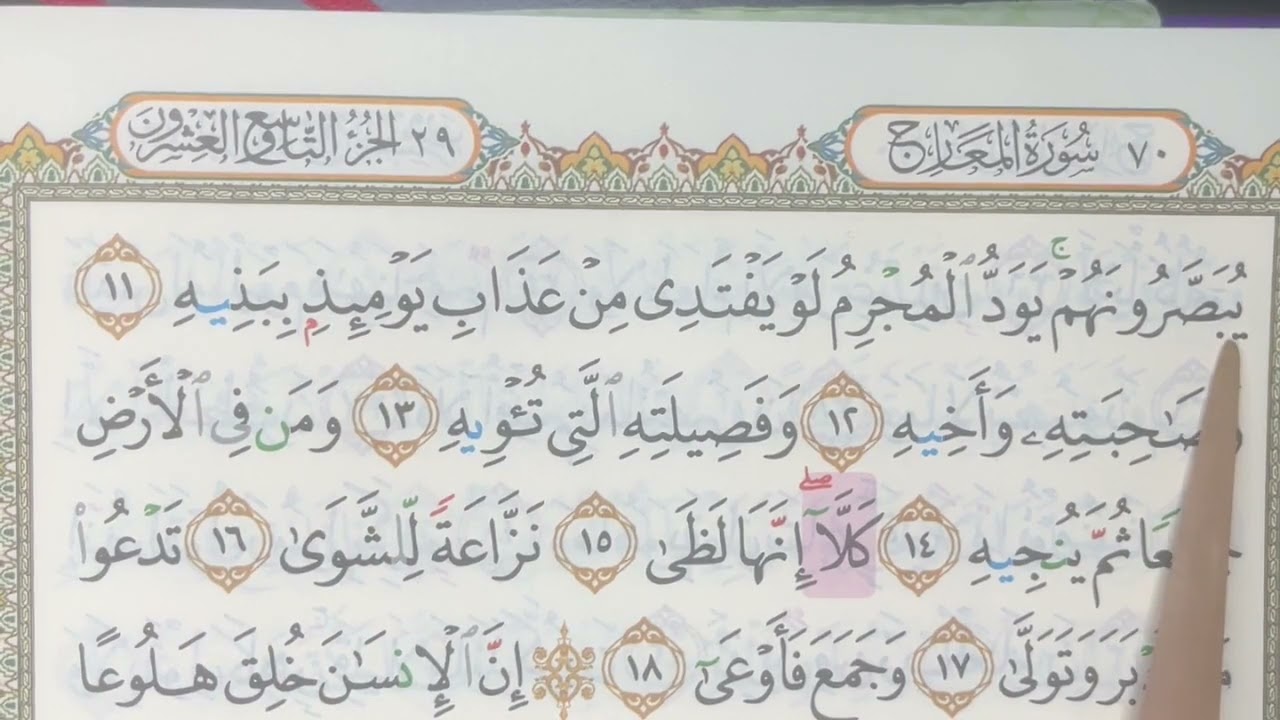 ٧٠ سُورَةُ المَعَارِج
٢٩ الجُزءُ التَّاسِعُ وَالعِشْرُون
يُبَصَّرُونَهُمْۚ يَوَدُّ ٱلْمُجْرِمُ لَوْ يَفْتَدِى مِنْ عَذَابِ يَوْمِئِذِۭ بِبَنِيهِ ١١
وَصَٰحِبَتِهِۦ وَأَخِيهِ ١٢ وَفَصِيلَتِهِ ٱلَّتِى تُـْٔوِيهِ ١٣ وَمَن فِى ٱلْأَرْضِ
ثُمَّ يُنجِيهِ ١٤ كَلَّآۖ إِنَّهَا لَظَىٰ ١٥ نَزَّاعَةً لِّلشَّوَىٰ ١٦ تَدْعُوا۟
وَتَوَلَّىٰ ١٧ وَجَمَعَ فَأَوْعَىٰٓ ١٨ إِنَّ ٱلْإِنسَٰنَ خُلِقَ هَلُوعًا